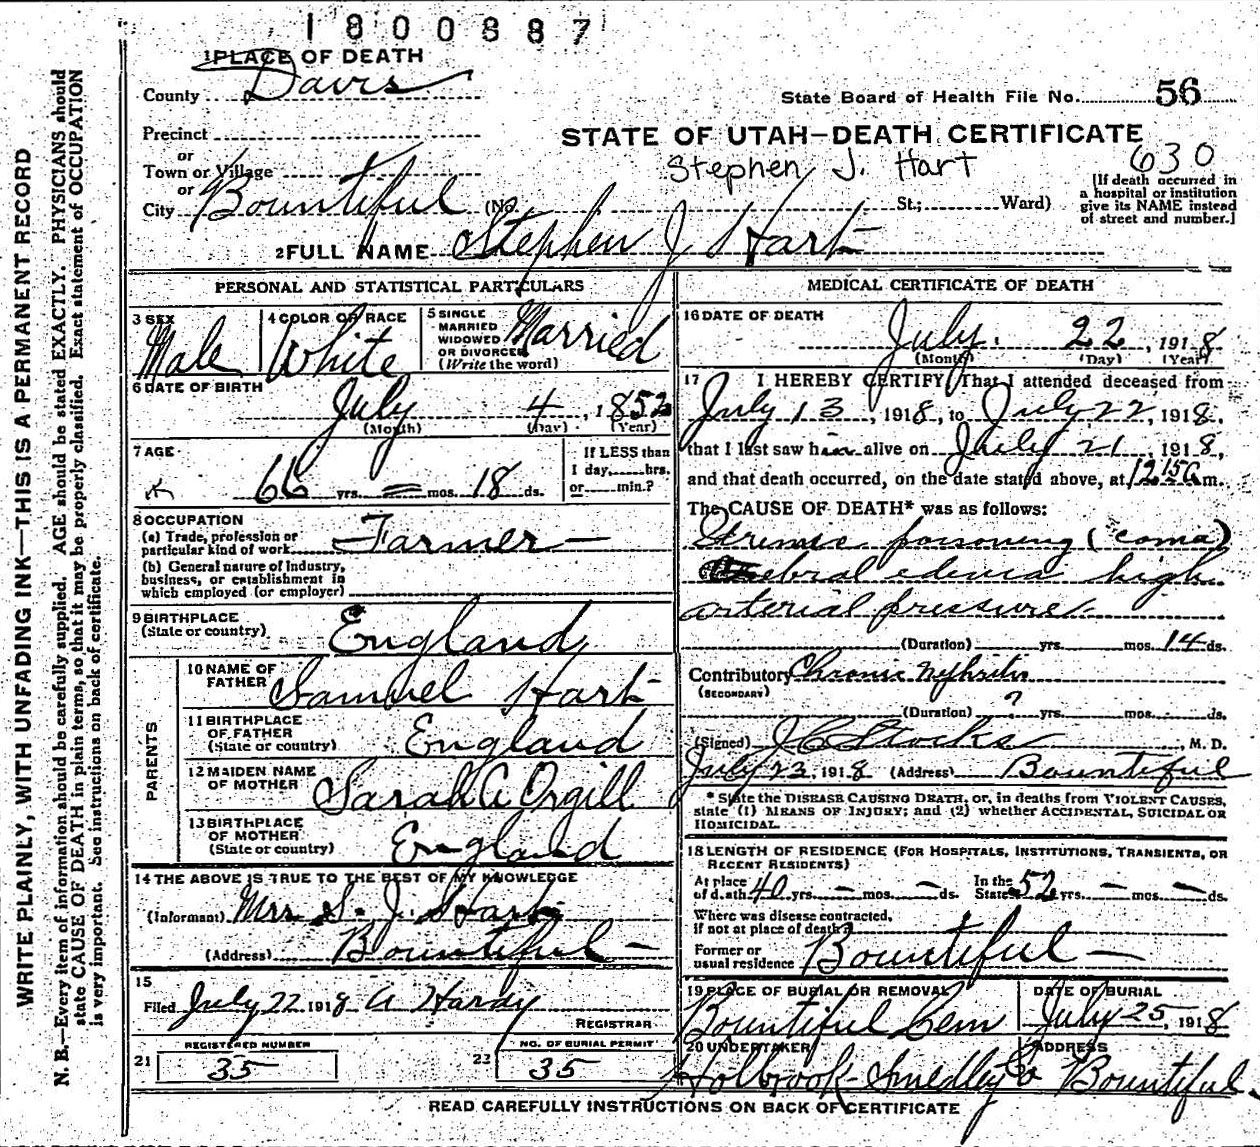 1800887
1 PLACE OF DEATH
County Davis
State Board of Health File No. 56
Precinct
STATE OF UTAH—DEATH CERTIFICATE
or
Town or Village
Stephen J. Hart
630
or
City Bountiful (No. St.; Ward)
[If death occurred in
a hospital or institution
give its NAME instead
of street and number.]
2 FULL NAME Stephen J Hart
PERSONAL AND STATISTICAL PARTICULARS
3 SEX
Male
4 COLOR OR RACE
White
5 SINGLE
MARRIED
WIDOWED
OR DIVORCED
(Write the word)
Married
6 DATE OF BIRTH
July 4, 1852
(Month) (Day) (Year)
7 AGE
66 yrs. — mos. 18 ds.
If LESS than
1 day, hrs.
or min.?
8 OCCUPATION
(a) Trade, profession or
particular kind of work Farmer
(b) General nature of Industry,
business, or establishment in
which employed (or employer)
9 BIRTHPLACE
(State or country) England
PARENTS
10 NAME OF
FATHER Samuel Hart
11 BIRTHPLACE
OF FATHER
(State or country) England
12 MAIDEN NAME
OF MOTHER Sarah A Orgill
13 BIRTHPLACE
OF MOTHER
(State or country) England
14 THE ABOVE IS TRUE TO THE BEST OF MY KNOWLEDGE
(Informant) Mrs S. J. Hart
(Address) Bountiful —
15
Filed July 22 1918 A Hardy
REGISTRAR
21
REGISTERED NUMBER
35
22
NO. OF BURIAL PERMIT
35
MEDICAL CERTIFICATE OF DEATH
16 DATE OF DEATH
July 22, 1918
(Month) (Day) (Year)
17 I HEREBY CERTIFY, That I attended deceased from
July 13, 1918, to July 22, 1918,
that I last saw him alive on July 21, 1918,
and that death occurred, on the date stated above, at 12 15 a m.
The CAUSE OF DEATH* was as follows:
Uremic poisoning (coma)
Cerebral edema high
arterial pressure
(Duration) yrs. mos. 14 ds.
Contributory Chronic Nephritis
(SECONDARY)
(Duration) ? yrs. mos. ds.
(Signed) J C Stocks, M. D.
July 23, 1918 (Address) Bountiful
* State the DISEASE CAUSING DEATH, or, in deaths from VIOLENT CAUSES,
state (1) MEANS OF INJURY; and (2) whether ACCIDENTAL, SUICIDAL OR
HOMICIDAL.
18 LENGTH OF RESIDENCE (FOR HOSPITALS, INSTITUTIONS, TRANSIENTS, OR
RECENT RESIDENTS)
At place
of death 40 yrs. — mos. — ds. In the
State 52 yrs. — mos. — ds.
Where was disease contracted,
if not at place of death?
Former or
usual residence Bountiful —
19 PLACE OF BURIAL OR REMOVAL
Bountiful Cem
DATE OF BURIAL
July 25, 1918
20 UNDERTAKER
Holbrook-Smedley Co
ADDRESS
Bountiful
READ CAREFULLY INSTRUCTIONS ON BACK OF CERTIFICATE
WRITE PLAINLY, WITH UNFADING INK—THIS IS A PERMANENT RECORD
N. B.—Every item of information should be carefully supplied. AGE should be stated EXACTLY. PHYSICIANS should
state CAUSE OF DEATH in plain terms, so that it may be properly classified. Exact statement of OCCUPATION
is very important. See instructions on back of certificate.